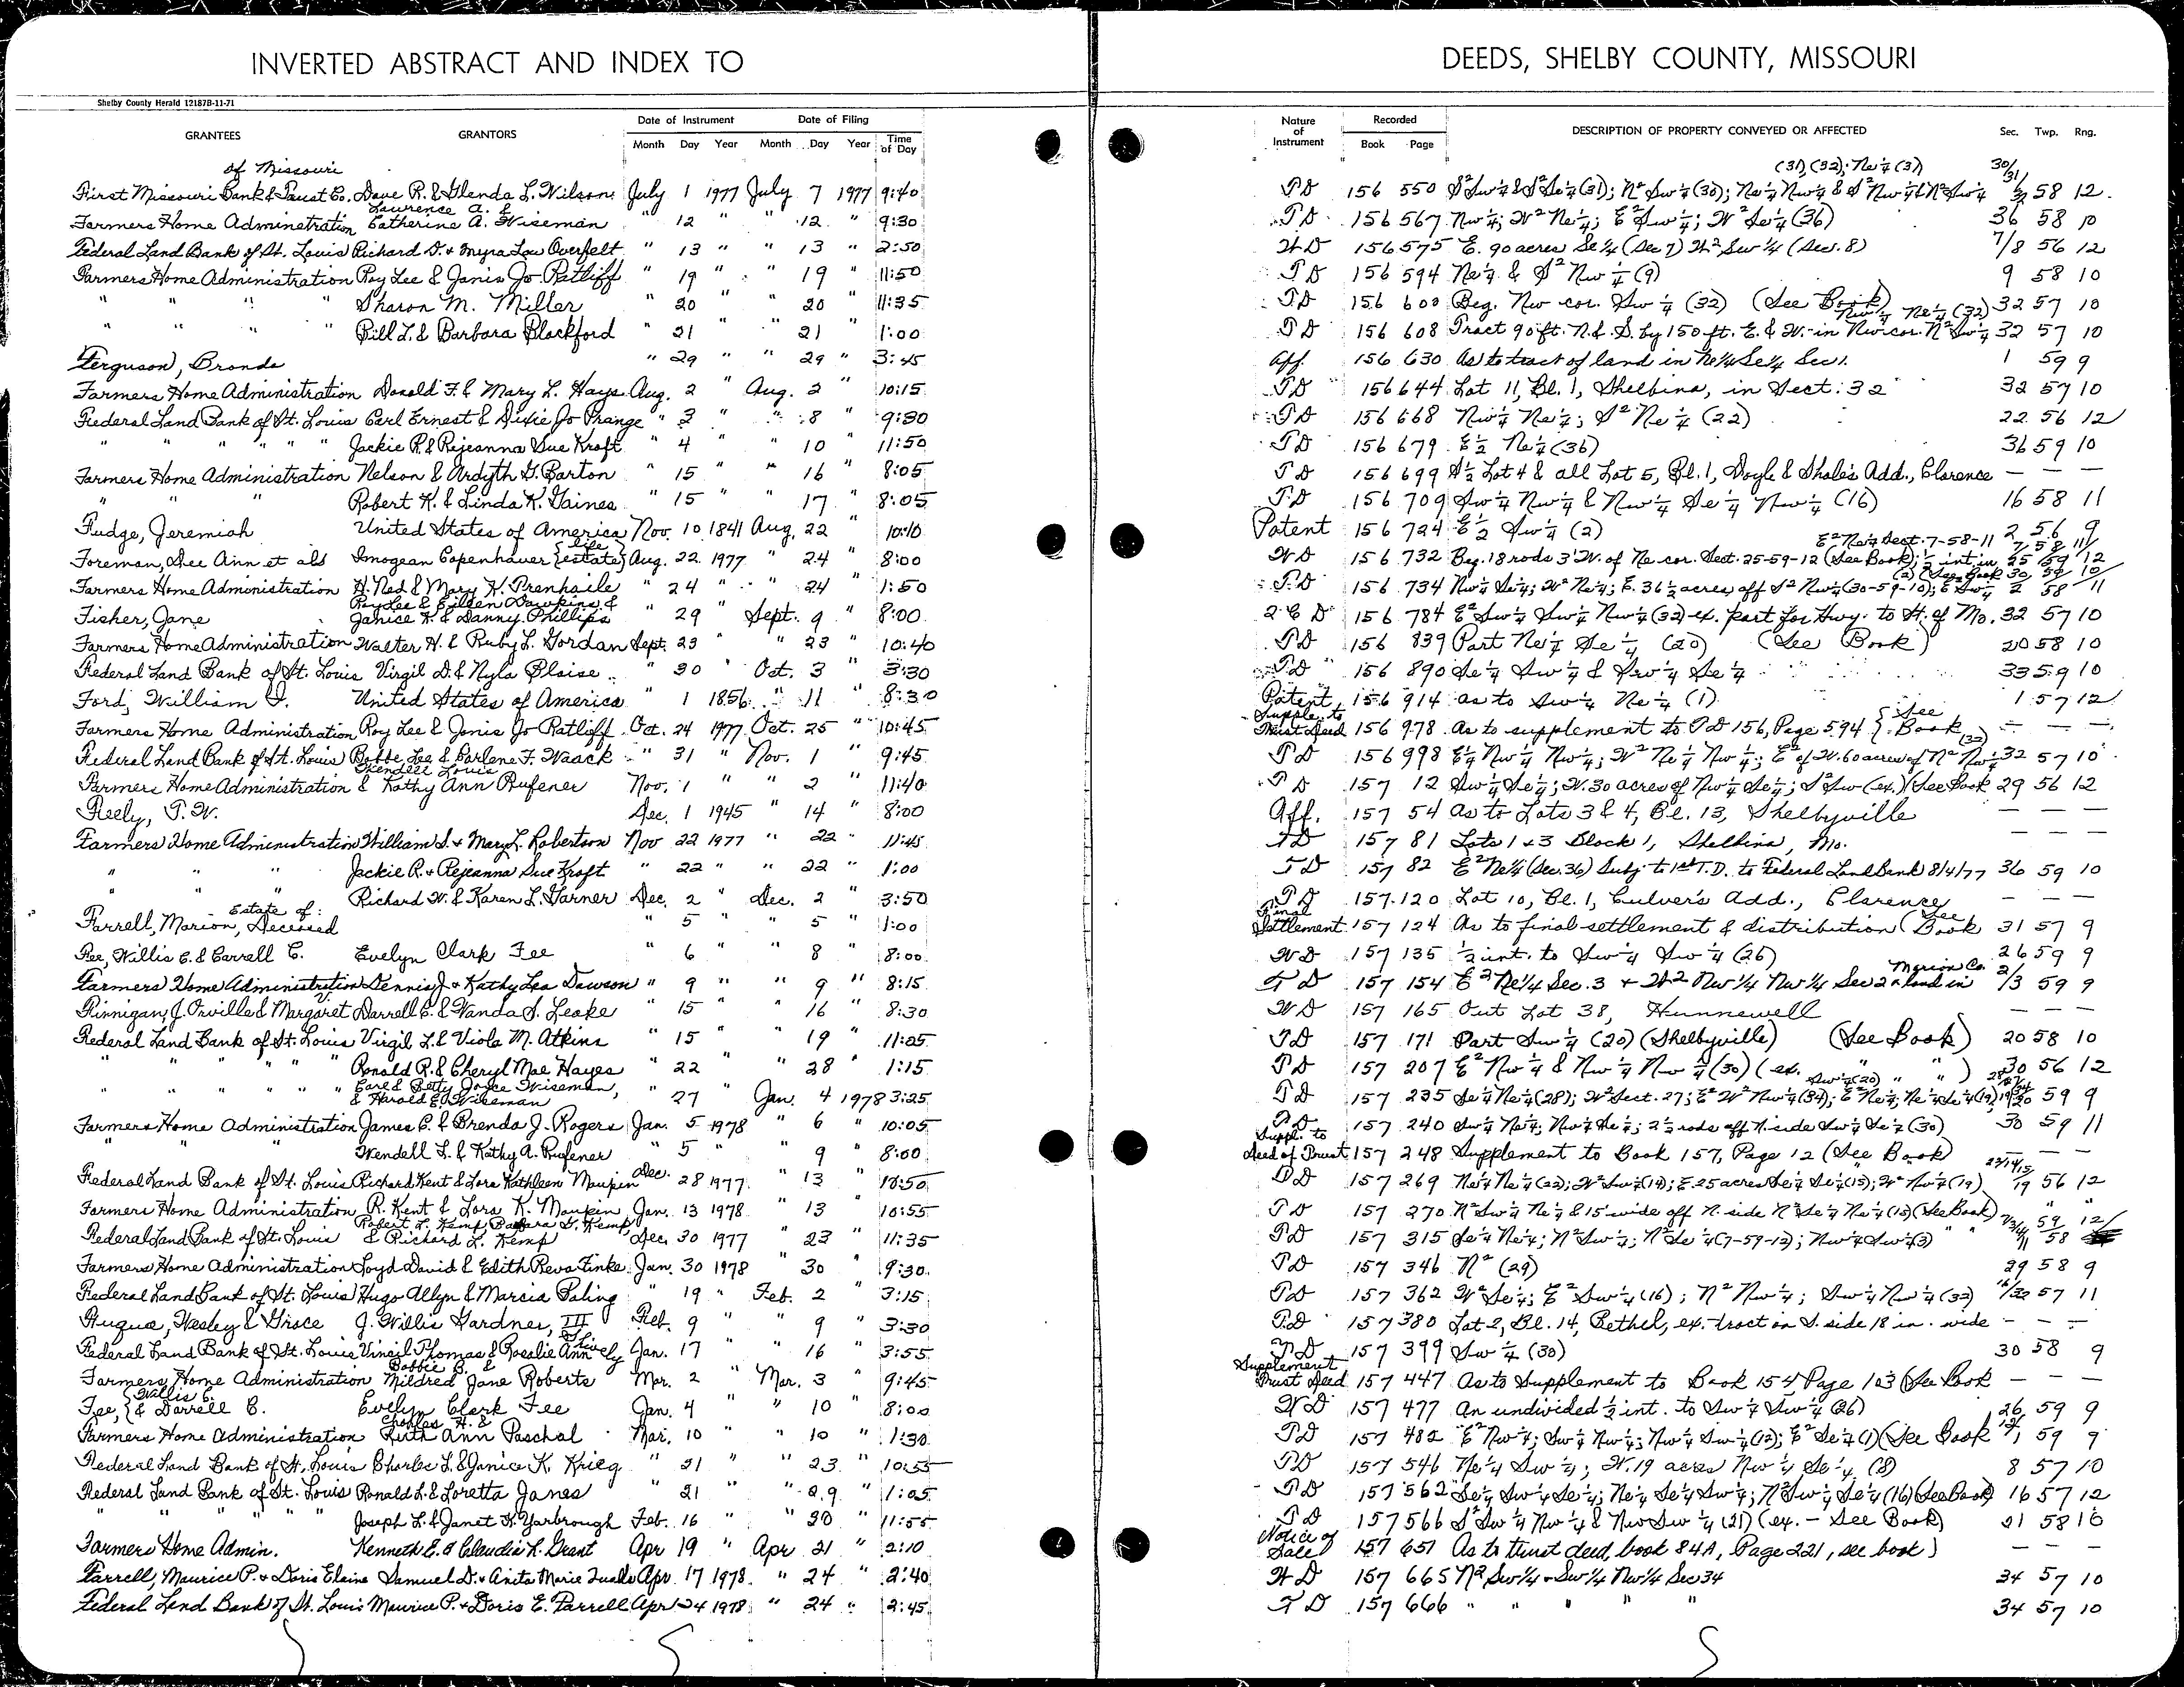 INVERTED ABSTRACT AND INDEX TO
DEEDS, SHELBY COUNTY, MISSOURI
Shelby County Herald 12187B-11-71
GRANTEES GRANTORS Date of Instrument Month Day Year Date of Filing Month Day Year Time of Day Nature of Instrument Recorded Book Page DESCRIPTION OF PROPERTY CONVEYED OR AFFECTED Sec. Twp. Rng.
of Missouri (31), (32); Ne 1/4 (3) 30/31
First Missouri Bank & Trust Co. Dave R. & Glenda L. Wilson July 1 1977 July 7 1977 9:40 TD 156 550 S² Sw 1/4 & S² Se 1/4 (31); N² Sw 1/4 (30); Ne 1/4 Nw 1/4 & S² Nw 1/4 & N² Sw 1/4 58 12
Lawrence A. &
Farmers Home Administration Catherine A. Wiseman " 12 " " 12 " 9:30 TD 156 567 Nw 1/4; W² Ne 1/4; E² Sw 1/4; W² Se 1/4 (36) 36 58 10
Federal Land Bank of St. Louis Richard D. & Myra Lou Overfelt " 13 " " 13 " 2:50 WD 156 575 E. 90 acres Se 1/4 (Sec 7) W² Sw 1/4 (Sec. 8) 7/8 56 12
Farmers Home Administration Roy Lee & Janis Jo Ratliff " 19 " " 19 " 11:50 TD 156 594 Ne 1/4 & S² Nw 1/4 (9) 9 58 10
" " " " Sharon M. Miller " 20 " " 20 " 11:35 TD 156 600 Beg. Nw cor. Sw 1/4 (32) (See Book) 32 57 10
Nw 1/4 Ne 1/4 (32)
" " " " Bill L. & Barbara Blackford " 21 " " 21 " 1:00 TD 156 608 Tract 90 ft. N. & S. by 150 ft. E. & W. in Nw cor. N² Sw 1/4 32 57 10
Ferguson, Bronda " 29 " " 29 " 3:45 Aff. 156 630 As to tract of land in Ne 1/4 Se 1/4 Sec 1. 1 59 9
Farmers Home Administration Donald F. & Mary L. Hays Aug. 2 " Aug. 2 " 10:15 TD 156 644 Lot 11, Bl. 1, Shelbina, in Sect. 32 32 57 10
Federal Land Bank of St. Louis Carl Ernest & Dixie Jo Prange " 3 " " 8 " 9:30 TD 156 668 Nw 1/4 Ne 1/4; S² Ne 1/4 (22) 22 56 12
" " " " " " Jackie R. & Rejeanna Sue Kraft " 4 " " 10 " 11:50 TD 156 679 E 1/2 Ne 1/4 (36) 36 59 10
Farmers Home Administration Nelson & Ardyth G. Barton " 15 " " 16 " 8:05 TD 156 699 S 1/2 Lot 4 & all Lot 5, Bl. 1, Doyle & Shale's Add., Clarence — — —
" " " Robert K. & Linda K. Gaines " 15 " " 17 " 8:05 TD 156 709 Sw 1/4 Nw 1/4 & Nw 1/4 Se 1/4 Nw 1/4 (16) 16 58 11
Fudge, Jeremiah United States of America Nov. 10 1841 Aug. 22 " 10:10 Patent 156 724 E 1/2 Sw 1/4 (2) 2 56 9
E² Ne 1/4 Sect. 7-58-11 7 58 11
Foreman, Dee Ann et als Imogean Copenhaver {life estate} Aug. 22 1977 " 24 " 8:00 WD 156 732 Beg. 18 rods 3' W. of Ne cor. Sect. 25-59-12 (See Book); 1/2 int in 25 59 12
(2) (See Book 30 59 10
Farmers Home Administration H. Ned & Mary H. Prenhaile " 24 " " 24 " 1:50 TD 156 734 Nw 1/4 Se 1/4; W² Ne 1/4; E. 36 1/2 acres off S² Nw 1/4 (30-59-10); E² Sw 1/4 2 58 11
Roy Lee & Eileen Dawkins &
Fisher, Jane Janice K. & Danny Phillips " 29 " Sept. 9 " 8:00 2 C D 156 784 E² Sw 1/4 Sw 1/4 Nw 1/4 (32) ex. part for Hwy. to St. of Mo. 32 57 10
Farmers Home Administration Walter H. & Ruby L. Gordan Sept. 23 " " 23 " 10:40 TD 156 839 Part Ne 1/4 Se 1/4 (20) (See Book) 20 58 10
Federal Land Bank of St. Louis Virgil D. & Nyla Blaise " 30 " Oct. 3 " 3:30 TD 156 890 Se 1/4 Sw 1/4 & Sw 1/4 Se 1/4 33 59 10
Ford, William J. United States of America " 1 1856 " 11 " 8:30 Patent 156 914 as to Sw 1/4 Ne 1/4 (1) 1 57 12
Farmers Home Administration Roy Lee & Janis Jo Ratliff Oct. 24 1977 Oct. 25 " 10:45 Supple. to Trust Deed 156 978 As to supplement to TD 156, Page 594 {See Book — — —
Federal Land Bank of St. Louis Bobbe Lee & Carlene F. Waack " 31 " Nov. 1 " 9:45 TD 156 998 E 1/2 Nw 1/4 Nw 1/4; W² Ne 1/4 Nw 1/4; E² of W. 60 acres of N² Nw 1/4 (32) 32 57 10
Wendell Louis
Farmers Home Administration & Kathy Ann Rufener Nov. 1 " " 2 " 11:40 TD 157 12 Sw 1/4 Se 1/4; W. 30 acres of Nw 1/4 Se 1/4; S² Sw (ex.) (See Book 29 56 12
Feely, T. W. Dec. 1 1945 " 14 " 8:00 Aff. 157 54 As to Lots 3 & 4, Bl. 13, Shelbyville — — —
Farmers Home Administration William S. & Mary L. Robertson Nov 22 1977 " 22 " 11:45 TD 157 81 Lots 1 & 3 Block 1, Shelbina, Mo. — — —
" " " Jackie R. & Rejeanna Sue Kraft " 22 " " 22 " 1:00 TD 157 82 E² Ne 1/4 (Sec. 36) Subj. to 1st T.D. to Federal Land Bank 8/4/77 36 59 10
" " " Richard W. & Karen L. Garner Dec. 2 " Dec. 2 " 3:50 TD 157 120 Lot 10, Bl. 1, Culver's Add., Clarence — — —
Estate of:
Farrell, Marion, Deceased " 5 " " 5 " 1:00 Final Settlement 157 124 As to final settlement & distribution (See Book 31 57 9
Fee, Willis C. & Darrell C. Evelyn Clark Fee " 6 " " 8 " 8:00 WD 157 135 1/2 int. to Sw 1/4 Sw 1/4 (26) 26 59 9
Farmers Home Administration Dennis J. & Kathy Lea Dawson " 9 " " 9 " 8:15 TD 157 154 E² Ne 1/4 Sec. 3 + W² Nw 1/4 Nw 1/4 Sec 2 & land in Marion Co. 2/3 59 9
Finnigan, J. Orville & Margaret V. Darrell E. & Wanda S. Leake " 15 " " 16 " 8:30 WD 157 165 Out Lot 38, Hunnewell — — —
Federal Land Bank of St. Louis Virgil L. & Viola M. Atkins " 15 " " 19 " 11:05 TD 157 171 Part Sw 1/4 (20) (Shelbyville) (See Book) 20 58 10
" " " " " Ronald R. & Cheryl Mae Hayes " 22 " " 28 " 1:15 TD 157 207 E² Nw 1/4 & Nw 1/4 Nw 1/4 (30) (ex. " " ) 30 56 12
Earl & Betty Joyce Wiseman, Sw 1/4 (20)
" " " " " " & Harold E. Wiseman " 27 Jan. 4 1978 3:25 TD 157 235 Se 1/4 Ne 1/4 (28); W² Sect. 27; E² W² Nw 1/4 (34); E² Ne 1/4; Ne 1/4 Se 1/4 (19) 59 9
Farmers Home Administration James C. & Brenda J. Rogers Jan. 5 1978 " 6 " 10:05 TD 157 240 Sw 1/4 Ne 1/4; Nw 1/4 Se 1/4; 2 1/2 rods off N. side Sw 1/4 Se 1/4 (30) 30 59 11
" " " Wendell L. & Kathy A. Rufener " 5 " " 9 " 8:00 Suppl. to Deed of Trust 157 248 Supplement to Book 157, Page 12 (See Book) — — —
Federal Land Bank of St. Louis Richard Kent & Lora Kathleen Maupin Dec. 28 1977 " 13 " 10:50 TD 157 269 Ne 1/4 Ne 1/4 (23); W² Sw 1/4 (14); E. 25 acres Se 1/4 Se 1/4 (15); W² Nw 1/4 (19) 56 12
Farmers Home Administration R. Kent & Lora K. Maupin Jan. 13 1978 " 13 " 10:55 TD 157 270 N² Sw 1/4 Ne 1/4 & 15' wide off N. side N² Se 1/4 Ne 1/4 (15) (See Book)
Robert L. Kemp, Barbara G. Kemp,
Federal Land Bank of St. Louis & Richard L. Kemp Dec. 30 1977 " 23 " 11:35 TD 157 315 Se 1/4 Ne 1/4; N² Sw 1/4; N² Se 1/4 (7-59-12); Nw 1/4 Sw 1/4 (3) " "
Farmers Home Administration Loyd David & Edith Reva Finke Jan. 30 1978 " 30 " 9:30 TD 157 346 N² (29) 29 58 9
Federal Land Bank of St. Louis Hugo Allyn & Marcia Poling " 19 " Feb. 2 " 3:15 TD 157 362 W² Se 1/4; E² Sw 1/4 (16); N² Nw 1/4; Sw 1/4 Nw 1/4 (32) 16/32 57 11
Fuqua, Wesley & Grace J. Willis Gardner, III Feb. 9 " " 9 " 3:30 TD 157 380 Lot 2, Bl. 14, Bethel, ex. tract on S. side 18 in. wide — — —
Federal Land Bank of St. Louis Virgil Thomas & Rosalie Ann Lively Jan. 17 " " 16 " 3:55 TD 157 399 Sw 1/4 (30) 30 58 9
Bobbie B. &
Farmers Home Administration Mildred Jane Roberts Mar. 2 " Mar. 3 " 9:45 Supplement Trust Deed 157 447 As to Supplement to Book 154 Page 103 (See Book — — —
Fee, {Willis C. & Darrell C. Evelyn Clark Fee Jan. 4 " " 10 " 8:00 WD 157 477 An undivided 1/2 int. to Sw 1/4 Sw 1/4 (26) 26 59 9
Charles H. &
Farmers Home Administration Ruth Ann Paschal Mar. 10 " " 10 " 1:30 TD 157 482 E² Nw 1/4; Sw 1/4 Nw 1/4; Nw 1/4 Sw 1/4 (12); E² Se 1/4 (1) (See Book 12/1 59 9
Federal Land Bank of St. Louis Charles L. & Janice K. Krieg " 21 " " 23 " 10:55 TD 157 546 Ne 1/4 Sw 1/4; W. 19 acres Nw 1/4 Se 1/4 (8) 8 57 10
Federal Land Bank of St. Louis Ronald L. & Loretta Janes " 21 " " 29 " 1:05 TD 157 562 Se 1/4 Sw 1/4 Se 1/4; Ne 1/4 Se 1/4 Sw 1/4; N² Sw 1/4 Se 1/4 (16) (See Book) 16 57 12
" " " " " Joseph L. & Janet K. Yarbrough Feb. 16 " " 30 " 11:55 TD 157 566 S² Sw 1/4 Nw 1/4 & Nw Sw 1/4 (21) (ex. - See Book) 21 58 10
Farmers Home Admin. Kenneth E. & Claudia K. Grant Apr 19 " Apr 21 " 2:10 Notice of Sale 157 651 As to trust deed, book 84A, Page 221, see book) — — —
Farrell, Maurice P. & Doris Elaine Samuel D. & Anita Marie Qualls Apr. 17 1978 " 24 " 2:40 WD 157 665 N² Sw 1/4 & Sw 1/4 Nw 1/4 Sec 34 34 57 10
Federal Land Bank of St. Louis Maurice P. & Doris E. Farrell Apr 24 1978 " 24 " 2:45 TD 157 666 " " " " " 34 57 10